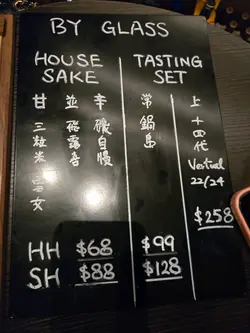 BY GLASS
HOUSE
SAKE
甘 三粒米 女
並 飛露喜
辛 磯自慢
HH $68
SH $88
TASTING
SET
常 鍋島
$99
$128
上 十四代
Vertical
22/24
$258